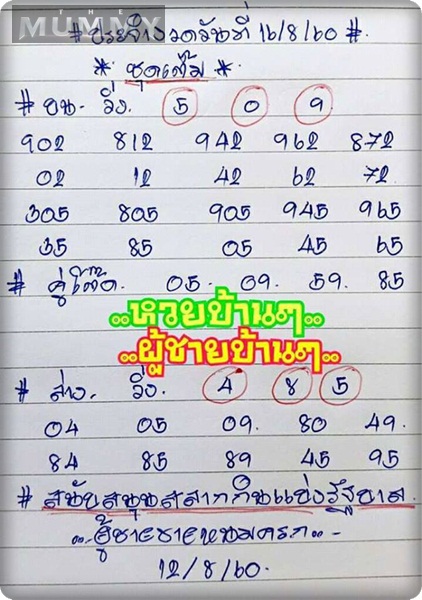 THE
MUMMY
# ประจำงวดวันที่ 16/8/60 #.
* ชุดเต็ม *
# บน วิ่ง 5 0 9
902 812 942 962 872
02 12 42 62 72
305 805 905 945 965
35 85 05 45 65
# คู่โต๊ด. 05. 09. 59. 85
..หวยบ้านๆ..
..ผู้ชายบ้านๆ..
# ล่าง. วิ่ง. 4 8 5
04 05 09. 80 49.
84 85 89 45 95
# สนับสนุนสลากกินแบ่งรัฐบาล.
12/8/60.